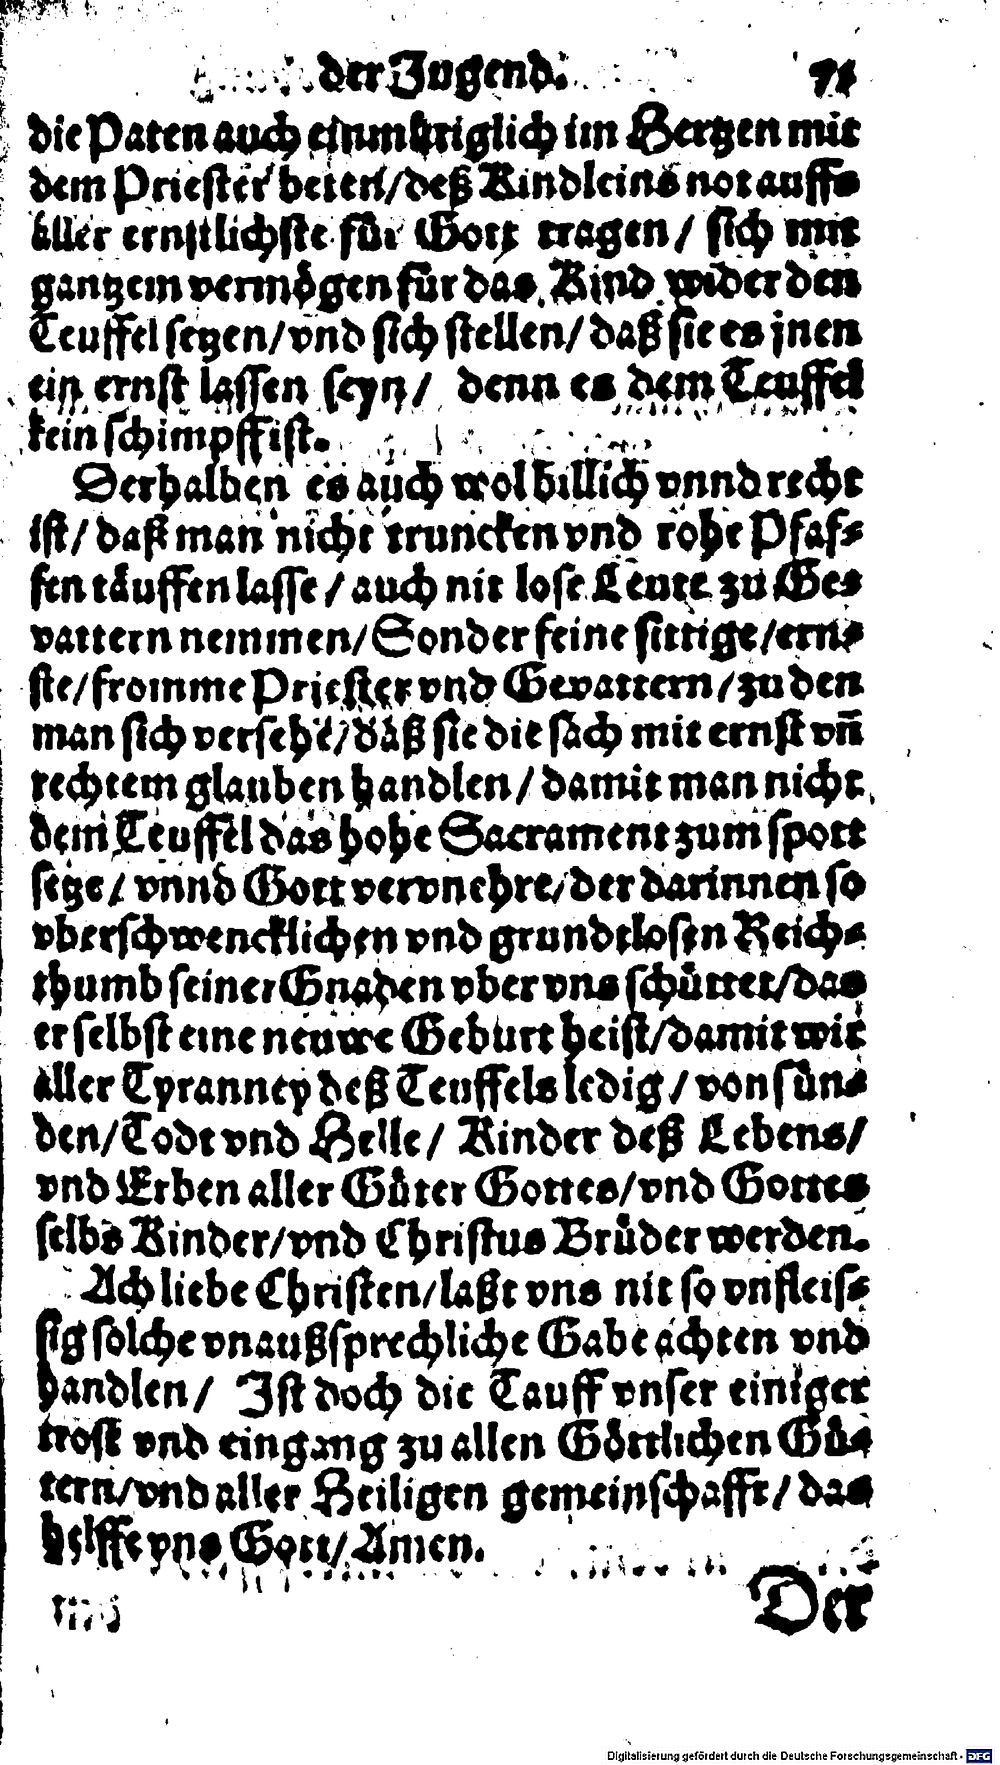 der Jugend. 71
die Paten auch einmütiglich im Hertzen mit
dem Priester beten/deß Kindleins not auffs
aller ernstlichste für Gott tragen/ sich mit
gantzem vermögen für das Kind wider den
Teuffel setzen/vnd sich stellen/daß sie es jnen
ein ernst lassen seyn/ denn es dem Teuffel
kein schimpff ist.
Derhalben es auch wol billich vnnd recht
ist/daß man nicht truncken vnd rohe Pfaf-
fen täuffen lasse/auch nit lose Leute zu Ge-
vattern nemmen/Sonder feine sittige/ern-
ste/fromme Priester vnd Gevattern/zu den
man sich versehe/daß sie die sach mit ernst vñ
rechtem glauben handlen/damit man nicht
dem Teuffel das hohe Sacrament zum spott
setze/ vnnd Gott vervnehre/der darinnen so
vberschwencklichen vnd grundtlosen Reich-
thumb seiner Gnaden vber vns schüttet/das
er selbst eine neuwe Geburt heist/damit wir
aller Tyranney deß Teuffels ledig/von sün-
den/Todt vnd Helle/ Kinder deß Lebens/
vnd Erben aller Güter Gottes/vnd Gottes
selbs Kinder/vnd Christus Brüder werden.
Ach liebe Christen/laßt vns nit so vnfleis-
sig solche vnaußsprechliche Gabe achten vnd
handlen/ Ist doch die Tauff vnser einiger
trost vnd eingang zu allen Göttlichen Gü-
tern/vnd aller Heiligen gemeinschafft/das
helffe vns Gott/Amen.
Der
Digitalisierung gefördert durch die Deutsche Forschungsgemeinschaft - DFG